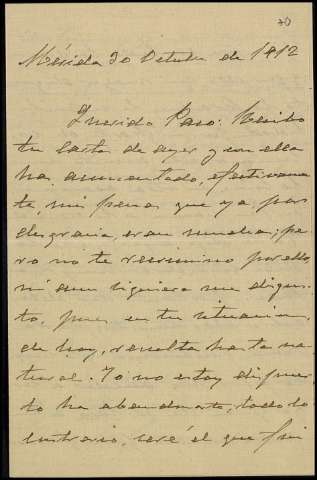 70
Mérida 20 Octubre de 1912
Querido Paso: Recibo
tu carta de ayer y con ella
ha aumentado, efectivamen
te, mis penas que ya, por
desgracia, eran muchas; pe
ro no te recrimino por ello,
ni aun siquiera me disgus
to, pues en tu situacion,
de hoy, resulta hasta na
tural. Yo no estoy dispues
to ha abandonarte, todo lo
contrario, seré el que fui